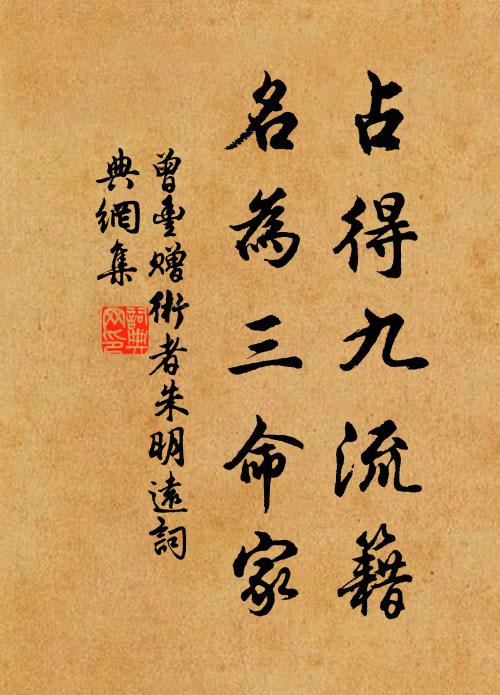 占得九流籍
名為三命家
曾豐贈術者朱明遠詞
典網集
詞典
网印